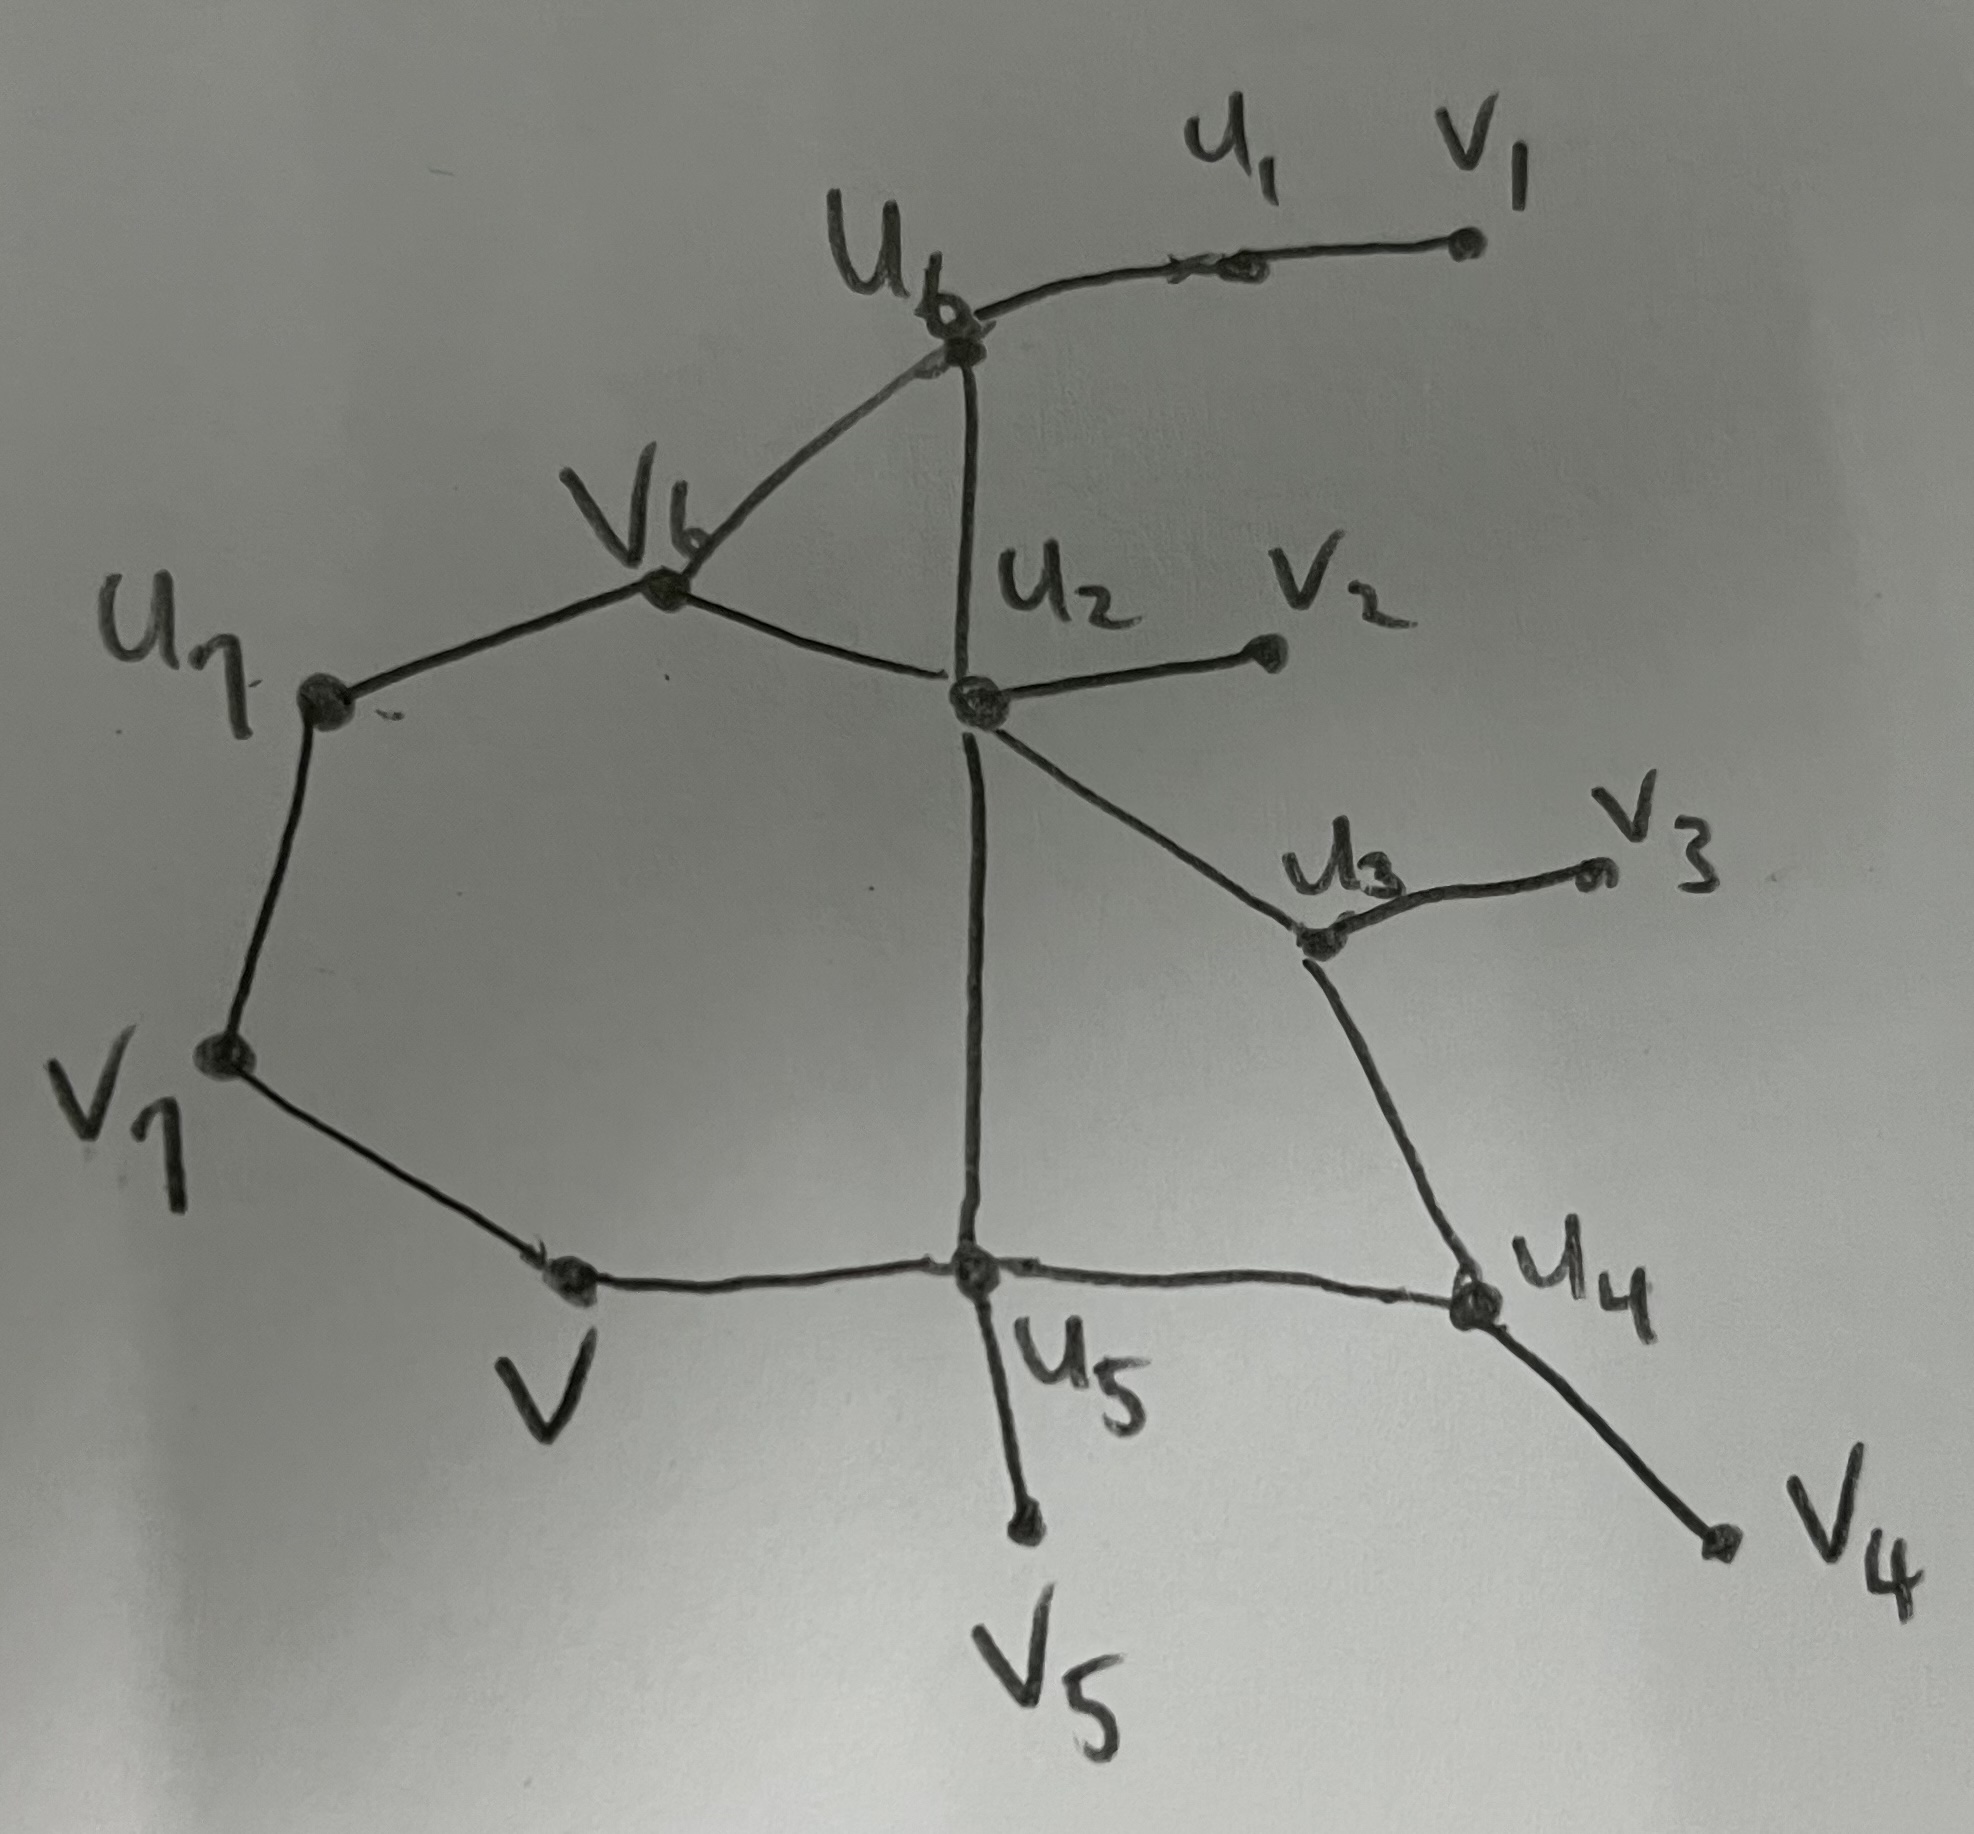 u₁
v₁
u₆
v₆
u₂
v₂
u₇
v₃
u₃
v₇
u₄
v
u₅
v₄
v₅